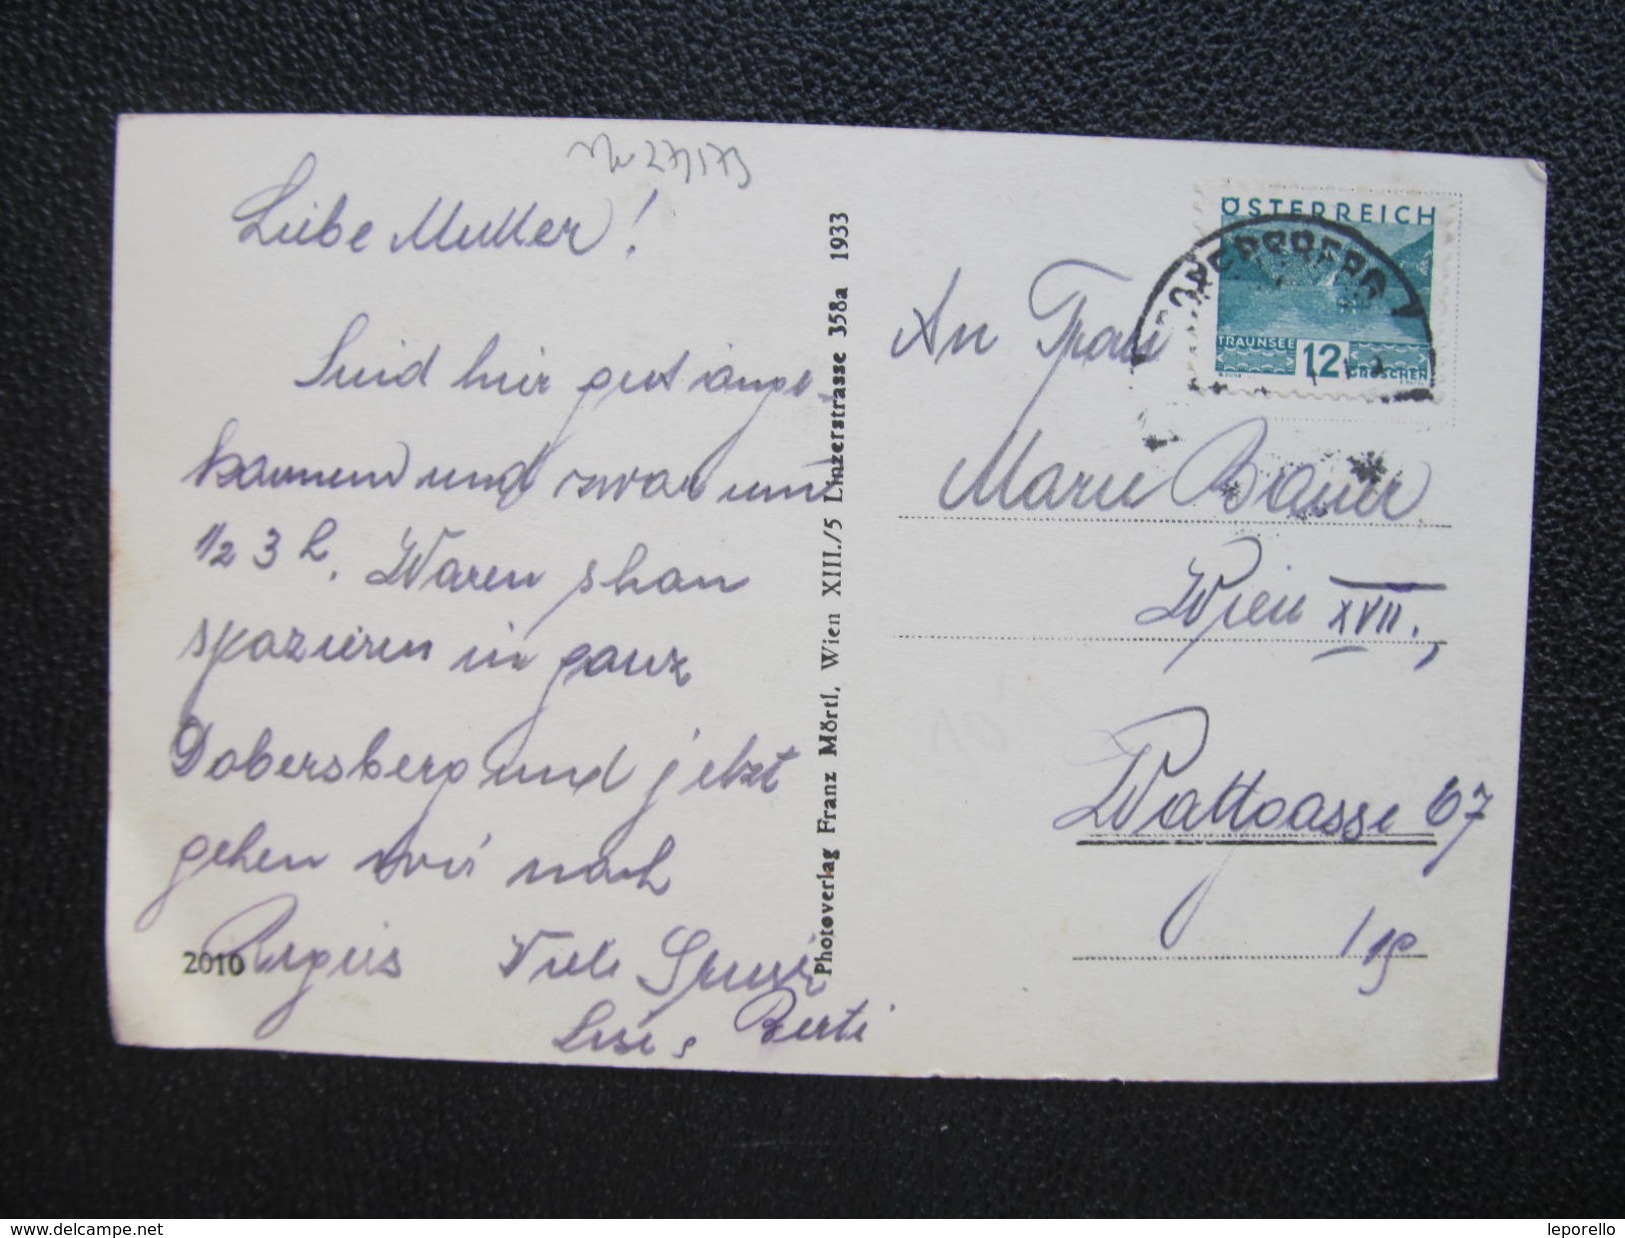 Liebe Mutter!
Sind hier gut ange-
kommen und zwar um
1/2 3 h. Waren shon
spazieren in ganz
Dobersberg und jetzt
gehen wir nach
Viele
Lisi, Berti
2010
Photoverlag Franz Mörtl, Wien XIII./5 Linzerstrasse 358a 1933
ÖSTERREICH
TRAUNSEE 12 GROSCHEN
DOBERSBERG
An Frau
Marie Brauer
Wien XVII.,
Wattgasse 67
/ 19
delcampe.net
leporello